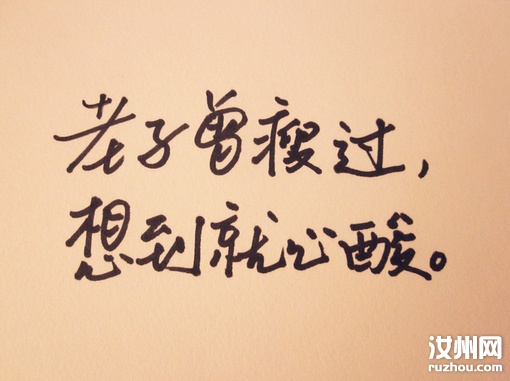 老子曾瘦过，
想到就心酸。
汝州网
ruzhou.com